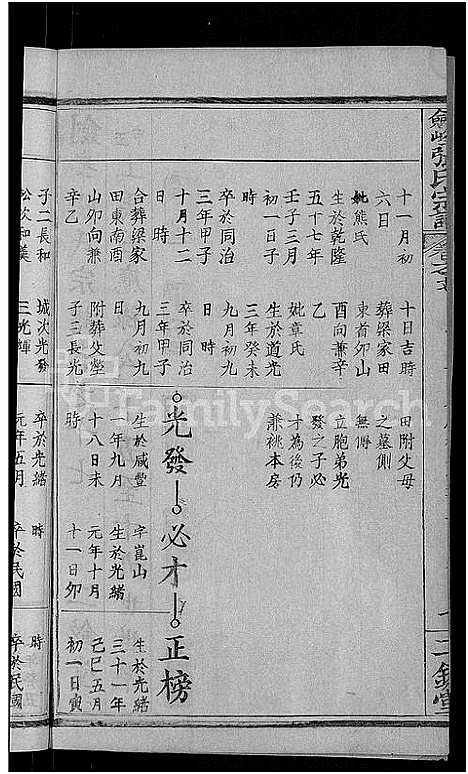 張氏宗譜
十一月初
六日
妣熊氏
生於乾隆
五十七年
壬子三月
時
卒於同治
三年甲子
十月十二
日時
合葬梁家
田東南酉
山夘向兼
辛乙
子二長和
松次和美
十日吉時
葬梁家田
東首夘山
酉向兼辛
乙
妣章氏
生於道光
三年癸未
九月初九
日時
卒於同治
三年甲子
九月初九
附葬父塋
子三長光
城次光發
三光輝
田附父母
之墓側
無傳
立胞弟光
發之子必
才為後仍
兼祧本房
光發
必才
正榜
生於咸豐
一年九月
十八日未
時
卒於光緒
元年五月
時
字崑山
生於光緒
元年十月
十一日夘
時
卒於民國
生於光緒
三十一年
己巳五月
初一日寅
時
卒於民國
FamilySearch